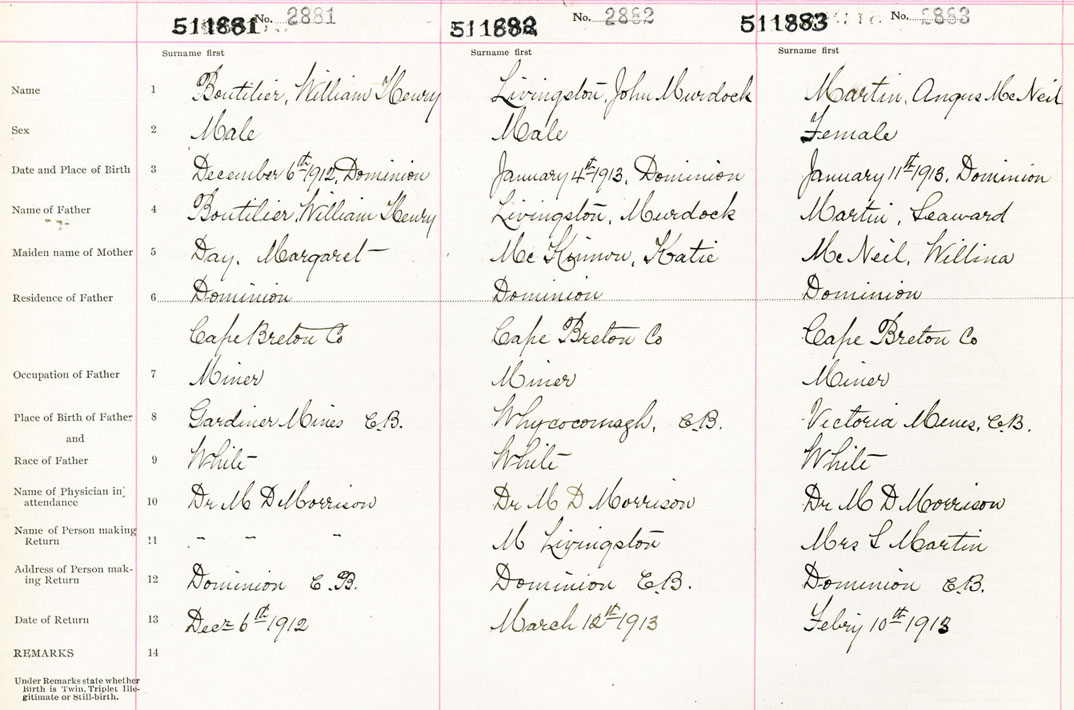 No. 2881 No. 2882 No. 2883
511881 511882 511883
Surname first Surname first Surname first
Name 1 Boutilier, William Henry Livingston, John Murdock Martin, Angus McNeil
Sex 2 Male Male Female
Date and Place of Birth 3 December 6th 1912, Dominion January 4th 1913, Dominion January 11th 1913, Dominion
Name of Father 4 Boutilier, William Henry Livingston, Murdock Martin, Seaward
Maiden name of Mother 5 Day, Margaret Mc Kinnon, Katie McNeil, Willina
Residence of Father 6 Dominion Dominion Dominion
Cape Breton Co Cape Breton Co Cape Breton Co
Occupation of Father 7 Miner Miner Miner
Place of Birth of Father 8 Gardiner Mines C.B. Whycocomagh, C.B. Victoria Mines, C.B.
and
Race of Father 9 White White White
Name of Physician in attendance 10 Dr M D Morrison Dr M D Morrison Dr M D Morrison
Name of Person making Return 11 " " " M Livingston Mrs S Martin
Address of Person mak-
ing Return 12 Dominion C.B. Dominion C.B. Dominion C.B.
Date of Return 13 Decr 6th 1912 March 12th 1913 Febry 10th 1913
REMARKS 14
Under Remarks state whether
Birth is Twin, Triplet Ille-
gitimate or Still-birth.